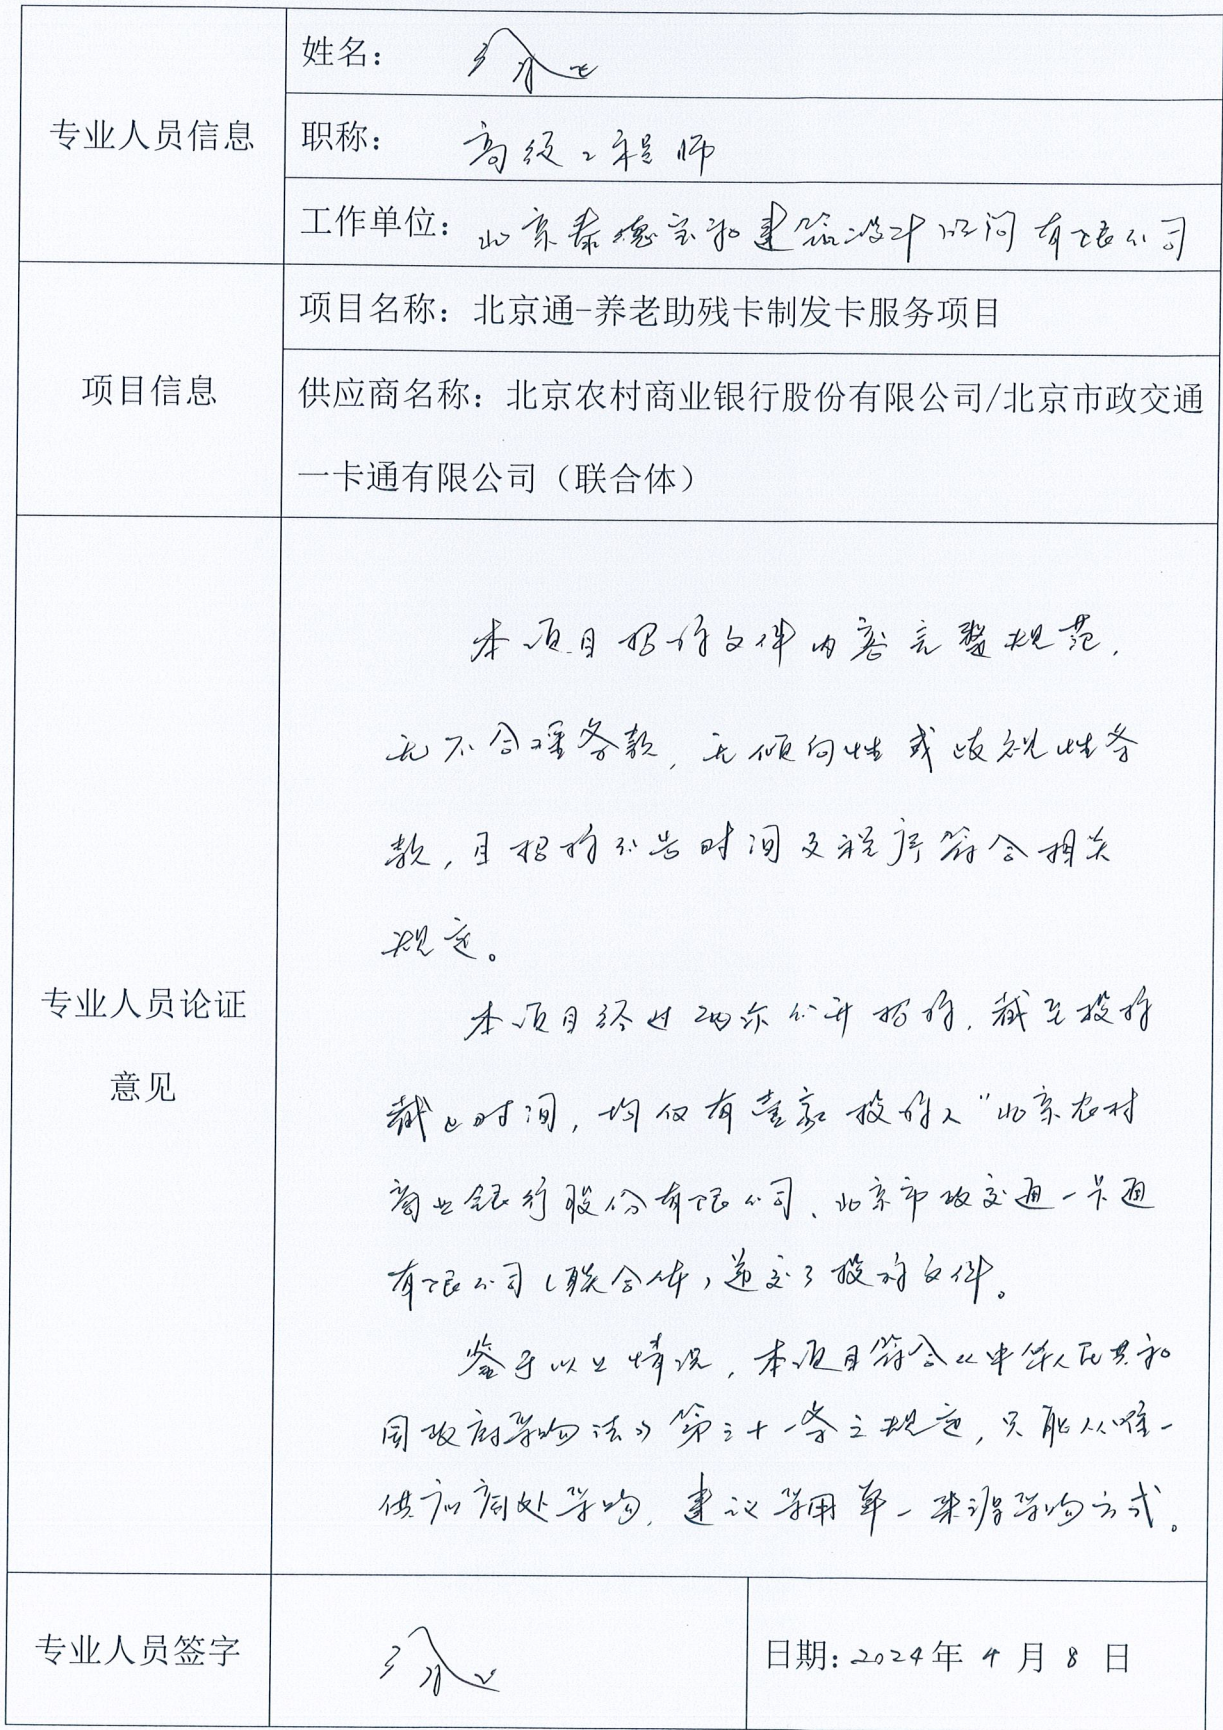 姓名：
专业人员信息
职称： 高级工程师
工作单位：北京泰德宝和建筑设计顾问有限公司
项目名称：北京通-养老助残卡制发卡服务项目
项目信息
供应商名称：北京农村商业银行股份有限公司/北京市政交通
一卡通有限公司（联合体）
本项目招标文件内容完整规范，
无不合理条款，无倾向性或歧视性条
款，且招标公告时间及程序符合相关
规定。
专业人员论证
意见
本项目经过两次公开招标，截至投标
截止时间，均仅有壹家投标人“北京农村
商业银行股份有限公司、北京市政交通一卡通
有限公司（联合体）递交了投标文件。
鉴于以上情况，本项目符合《中华人民共和
国政府采购法》第三十一条之规定，只能从唯一
供应商处采购，建议采用单一来源采购方式。
专业人员签字
日期：2024年4月8日